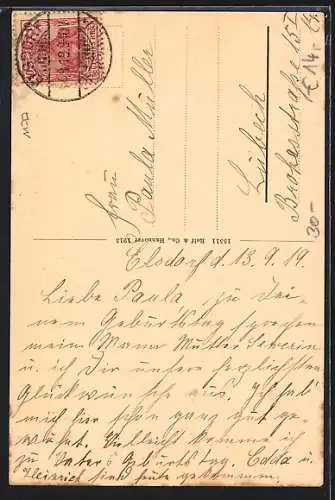 Frau
Paula Müller
Lübeck
Brokesstraße 15 I
€ 14,-
30-
15511 Rolf & Co., Hannover 1913
Elsdorf d. 13.9.19.
Liebe Paula, zu Dei-
nem Geburtstag sprechen
mein Mann Mutter Severin
u. ich Dir unsere herzlichsten
Glückwünsche aus. Ich hab'
mich hier schon ganz gut ge-
wöhnt. Vielleicht komme ich
zu Vaters Geburtstag. Edda u.
Heinrich sind heute gekommen.